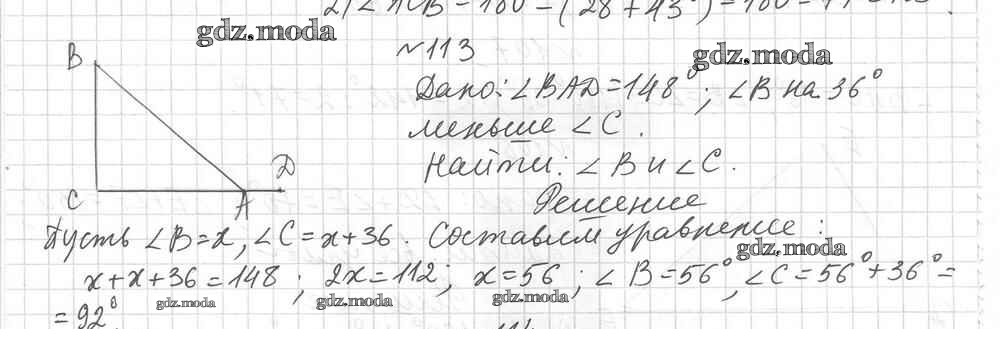 2) ∠ACB = 180° − (28° + 43°) = 180° −
gdz.moda
№113
gdz.moda
B
Дано: ∠BAD = 148°; ∠B на 36°
меньше ∠C.
Найти: ∠B и ∠C.
D
C
A
Решение
Пусть ∠B = x, ∠C = x + 36. Составлем уравнение:
gdz.moda
x + x + 36 = 148; 2x = 112; x = 56; ∠B = 56°, ∠C = 56° + 36° =
gdz.moda
gdz.moda
gdz.moda
= 92°.